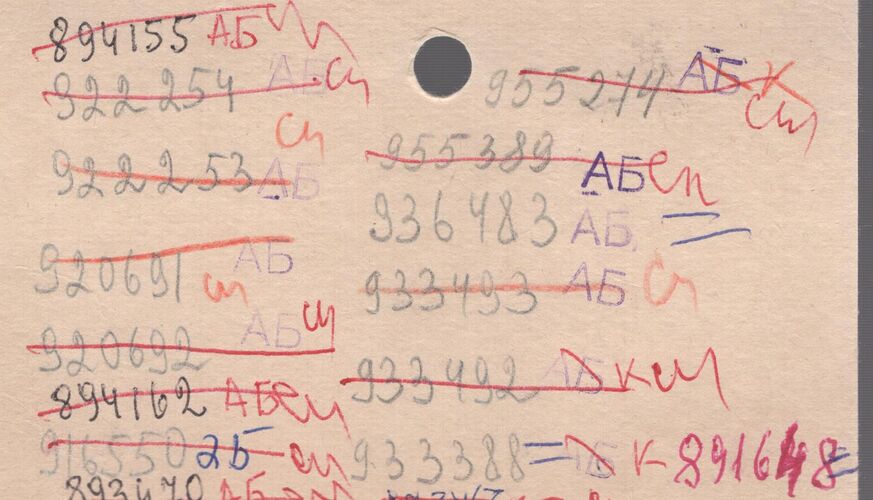 894155 АБ сп
922254 АБ сп
сп
922253 АБ
920691 АБ
сп
920692 АБ сп
894162 АБ сп
916550 2Б сп
893470 АБ
955274 АБ К
сп
955389 АБ сп
936483 АБ =
933493 АБ сп
933492 АБ К сп
933388 = АБ К 891648 =